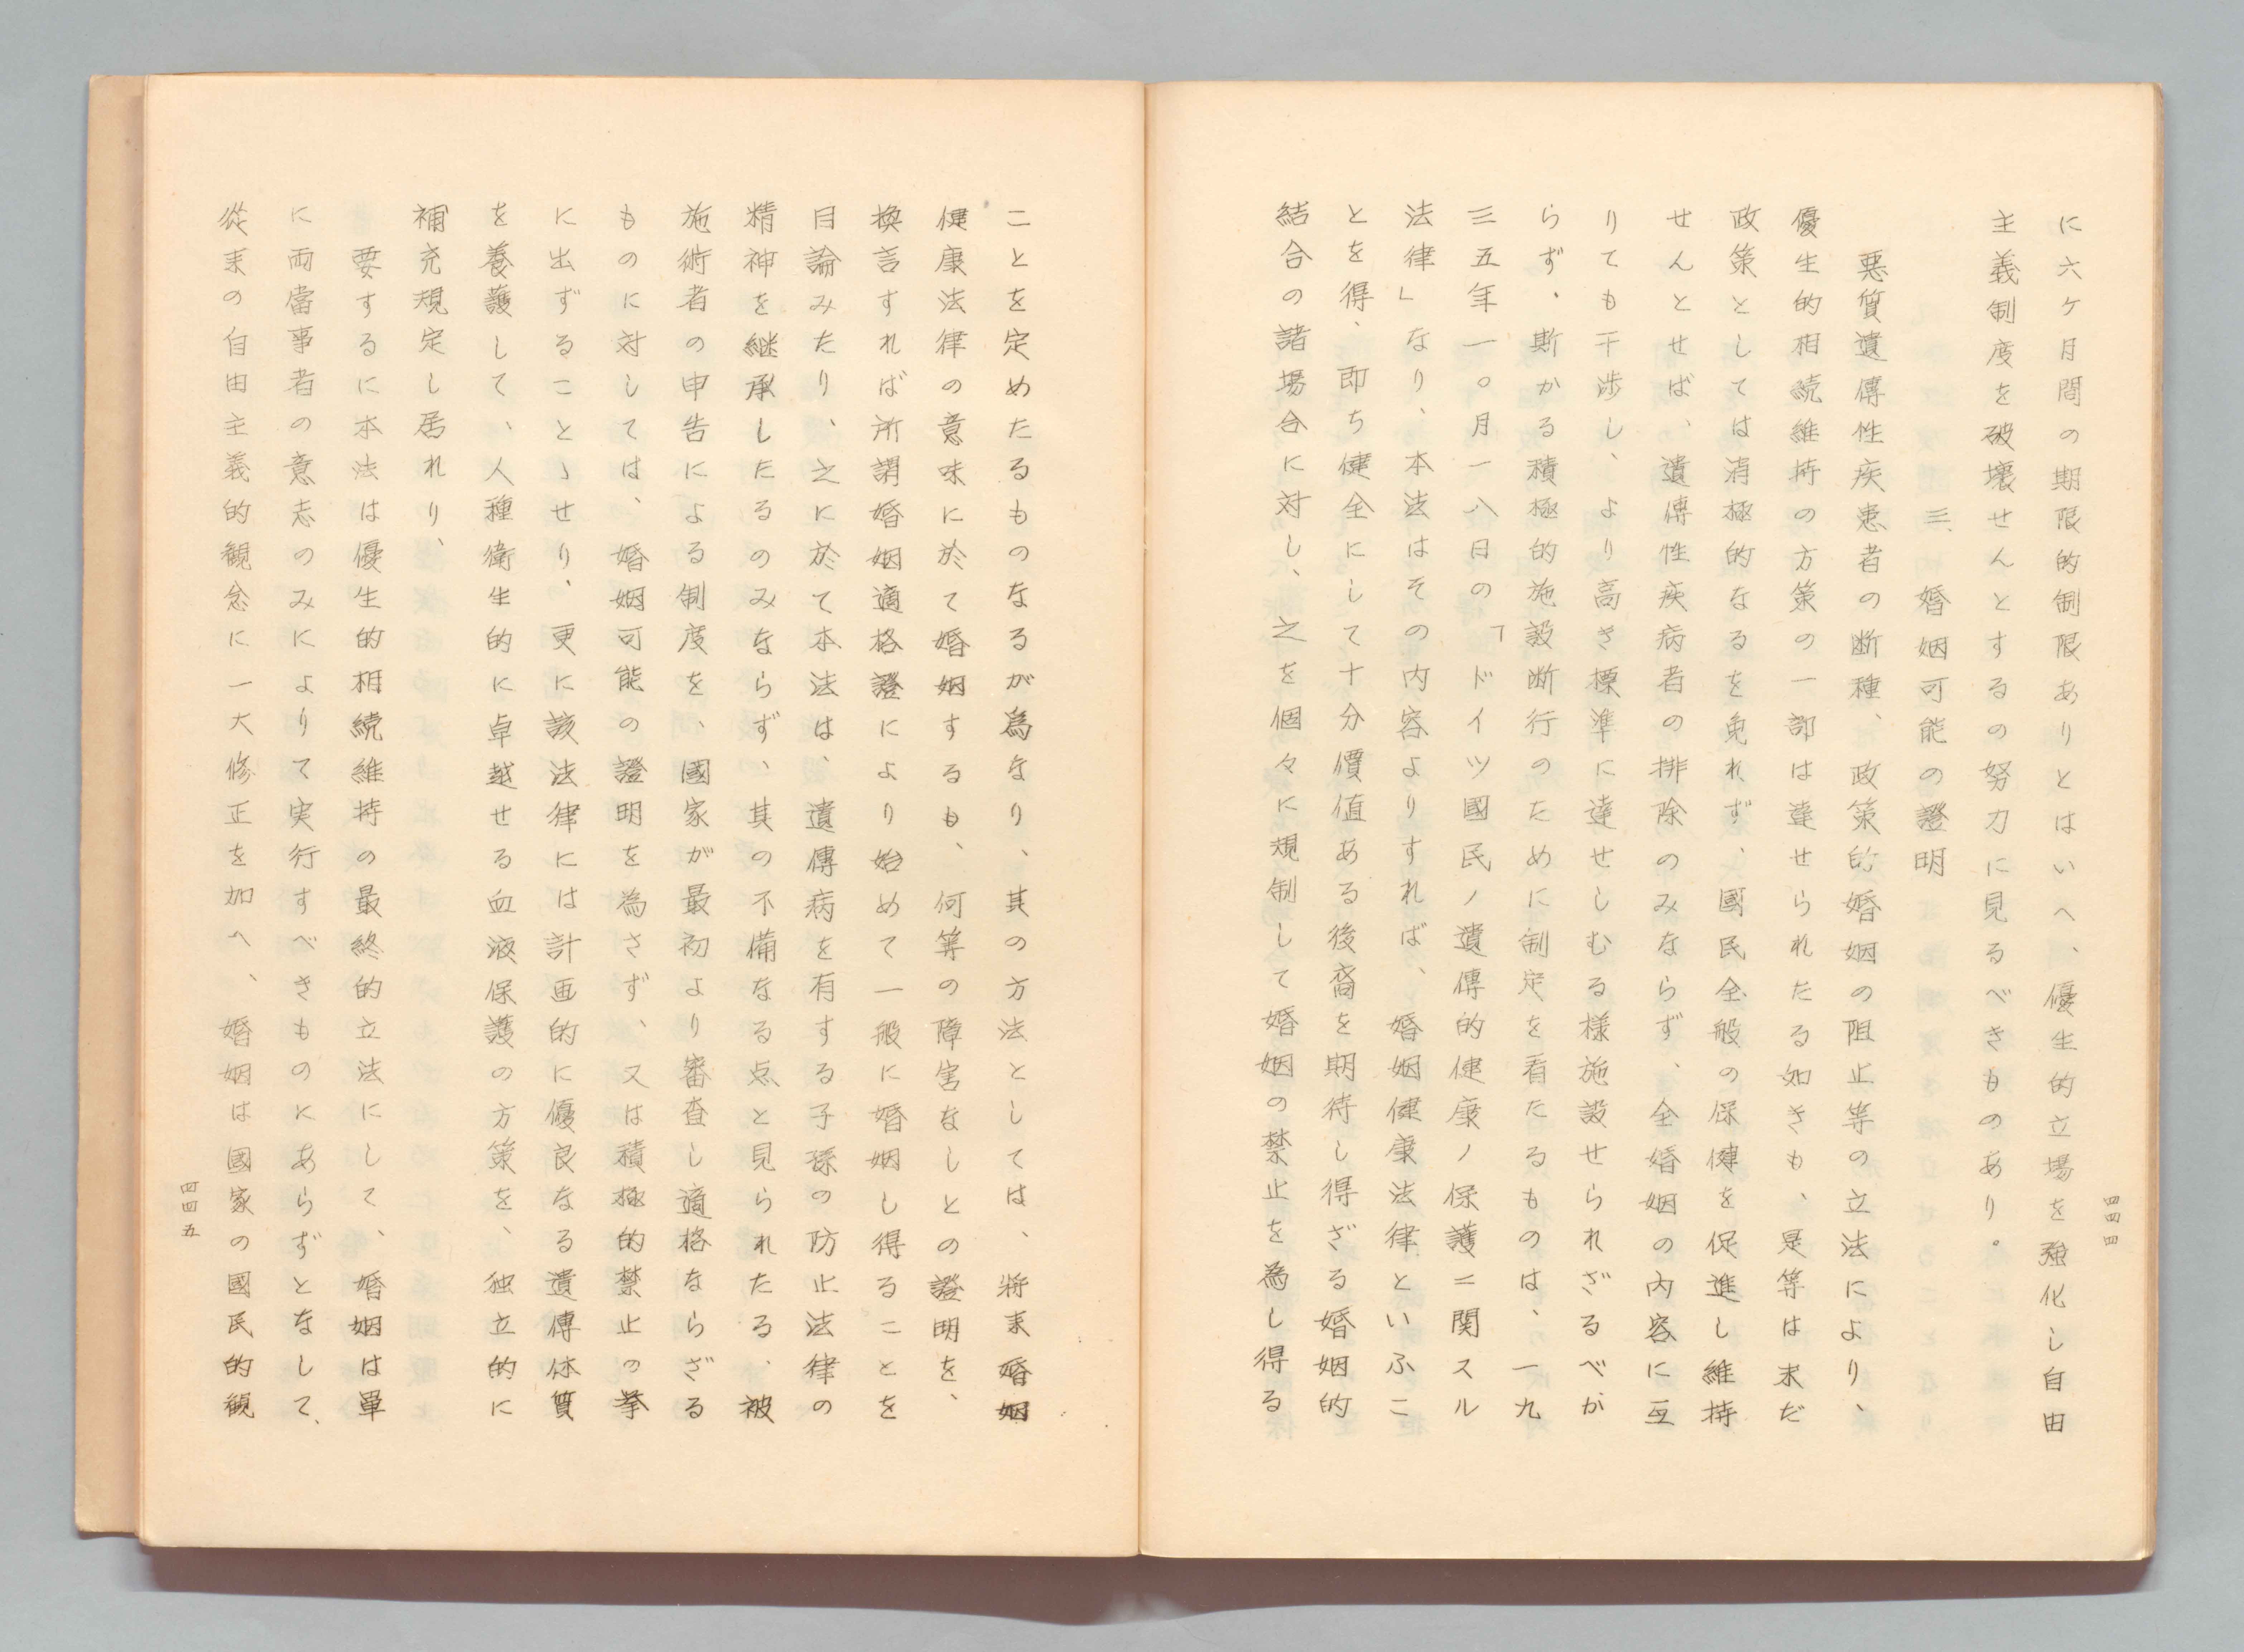 に六ケ月間の期限的制限ありとはいへ、優生的立場を強化し自由
主義制度を破壊せんとするの努力に見るべきものあり。
三、婚姻可能の證明
悪質遺傳性疾患者の断種、政策的婚姻の阻止等の立法により、
優生的相続維持の方策の一部は達せられたる如きも、是等は未だ
政策としては消極的なるを免れず、國民全般の保健を促進し維持
せんとせば、遺傳性疾病者の排除のみならず、全婚姻の内容に亙
りても干渉し、より高き標準に達せしむる様施設せられざるべか
らず、斯かる積極的施設断行のために制定を看たるものは、一九
三五年一〇月一八日の「ドイツ國民ノ遺傳的健康ノ保護ニ関スル
法律」なり、本法はその内容よりすれば、婚姻健康法律といふこ
とを得、即ち健全にして十分價値ある後裔を期待し得ざる婚姻的
結合の諸場合に対し、之を個々に規制して婚姻の禁止を為し得る
四四四
ことを定めたるものなるが為なり、其の方法としては、將来婚姻
健康法律の意味に於て婚姻するも、何等の障害なしとの證明を、
換言すれば所謂婚姻適格證により始めて一般に婚姻し得ることを
目論みたり、之に於て本法は、遺傳病を有する子孫の防止法律の
精神を継承したるのみならず、其の不備なる点と見られたる、被
施術者の申告による制度を、國家が最初より審査し適格ならざる
ものに対しては、婚姻可能の證明を為さず、又は積極的禁止の挙
に出ずることゝせり、更に該法律には計画的に優良なる遺傳体質
を養護して、人種衛生的に卓越せる血液保護の方策を、独立的に
補充規定し居れり、
要するに本法は優生的相続維持の最終的立法にして、婚姻は單
に両當事者の意志のみによりて実行すべきものにあらずとなして、
從来の自由主義的観念に一大修正を加へ、婚姻は國家の國民的観
四四五